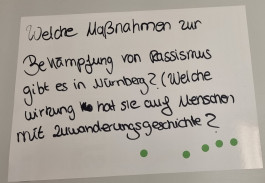 Welche Maßnahmen zur
Bekämpfung von Rassismus
gibt es in Nürnberg? (Welche
wirkung hat sie auf Menschen
mit Zuwanderungsgeschichte?